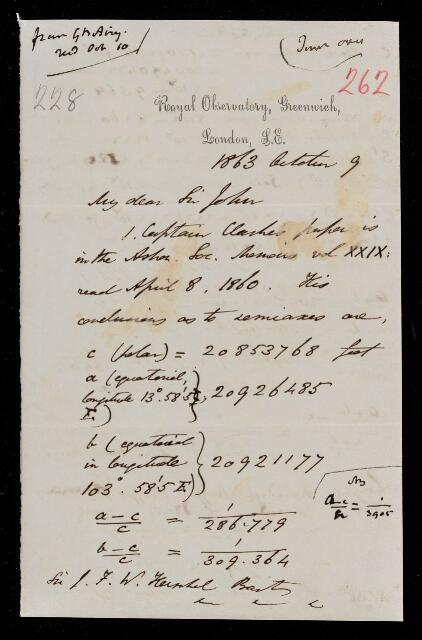 from G B Airy.
recd Oct 10
Turn over
228
262
Royal Observatory, Greenwich,
London, S.E.
1863 October 9
My dear Sir John
1. Captain Clarke's paper is
in the Astron. Soc. Memoirs vol XXIX:
read April 8, 1860. His
conclusions as to semiaxes are,
c (polar) = 20853768 feet
a (equatorial,
longitude 13°.58'.5
E.) } 20926485
b (equatorial
in longitude
103°.58'.5 E) } 20921177
(a-c)/c = 1/286.779
b-c/c = 1/309.364
= 1/3905
Sir J. F. W. Herschel Bart